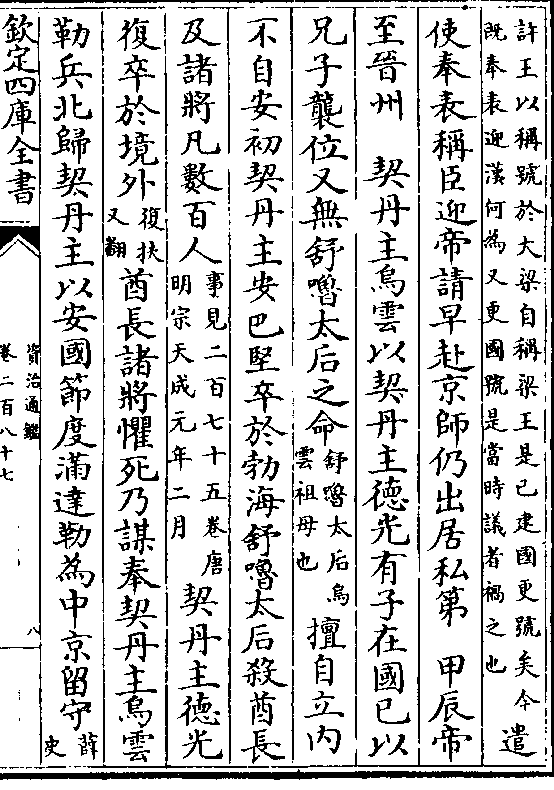 許王以稱號於大梁自稱梁王是已建國更號矣今
既奉表迎漢何為又更國號是當時議者禍之也
遣
使奉表稱臣迎帝請早赴京師仍出居私第　甲辰帝
至晉州　契丹主烏雲以契丹主德光有子在國已以
兄子襲位又無舒嚕太后之命
舒嚕太后烏
雲祖母也
擅自立內
不自安初契丹主安巴堅卒於勃海舒嚕太后殺酋長
及諸將凡數百人
事見二百七十五卷唐
明宗天成元年二月
契丹主德光
復卒於境外
復扶
又翻
酋長諸將懼死乃謀奉契丹主烏雲
勒兵北歸契丹主以安國節度滿達勒為中京留守
薛
史
欽定四庫全書
資治通鑑
卷二百八十七
八